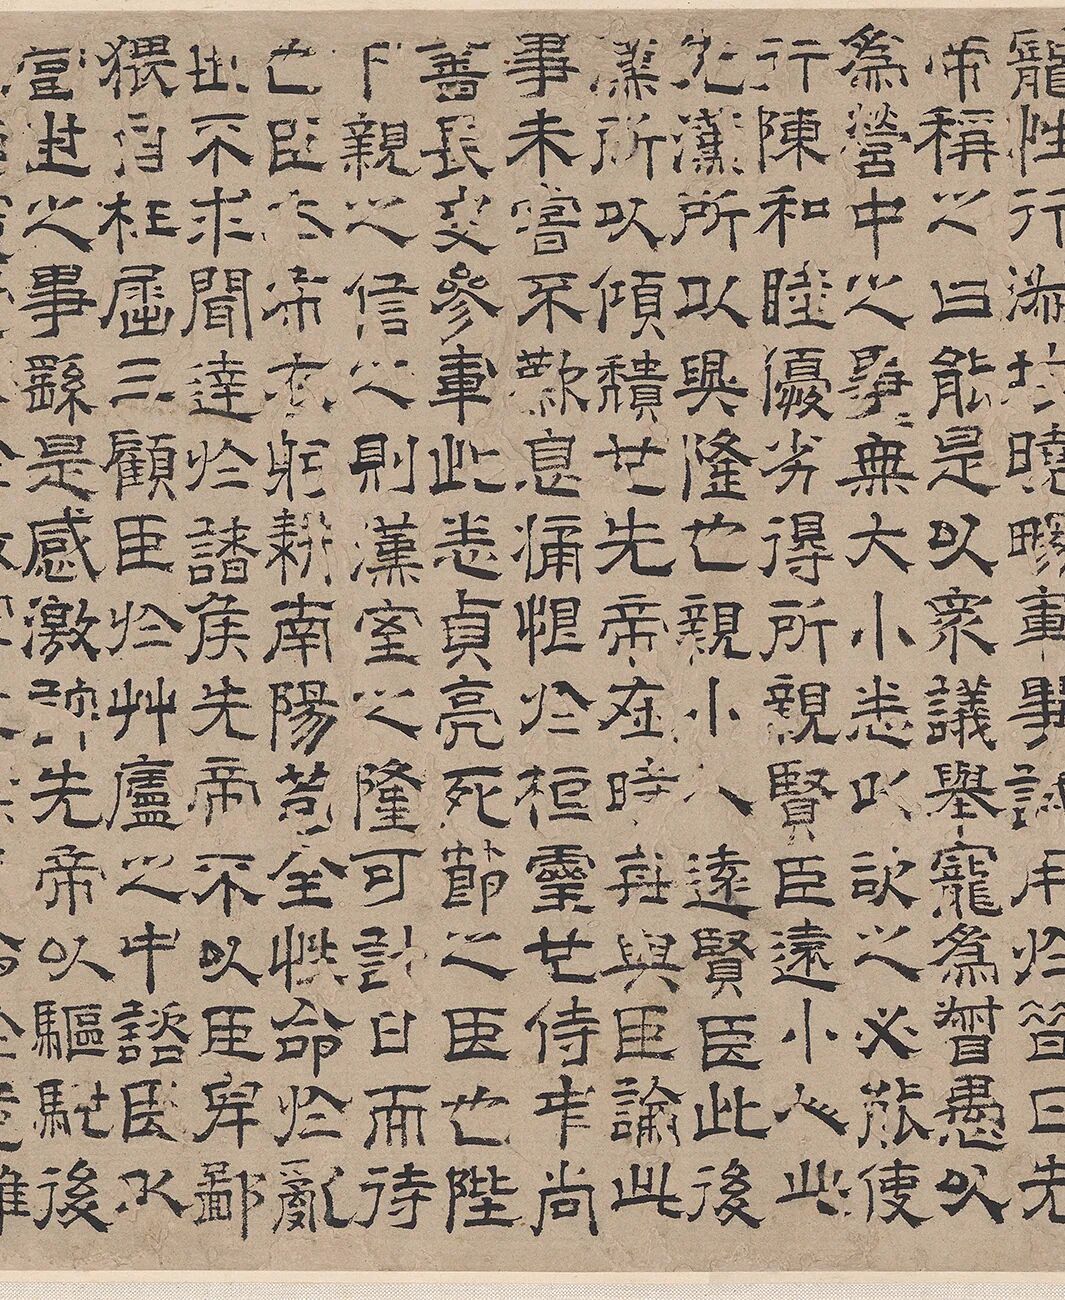 寵性行淑均曉暢軍事試用於昔日先
帝稱之曰能是以衆議舉寵爲督愚以
爲營中之事無大小悉以咨之必能使
行陳和睦優劣得所親賢臣遠小人此
先漢所以興隆也親小人遠賢臣此後
漢所以傾穨也先帝在時每與臣論此
事未嘗不歎息痛恨於桓靈也侍中尚
書長史參軍此悉貞亮死節之臣也陛
下親之信之則漢室之隆可計日而待
也臣本布衣躬耕南陽苟全性命於亂
世不求聞達於諸侯先帝不以臣卑鄙
猥自枉屈三顧臣於艸廬之中諮臣以
當世之事繇是感激許先帝以驅馳後